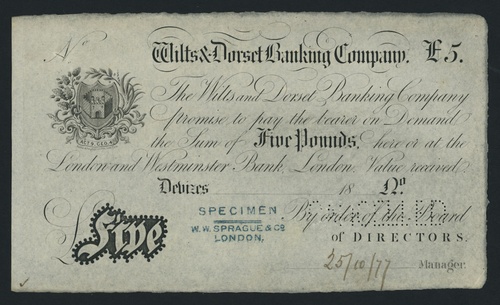 No
Wilts & Dorset Banking Company. £5.
The Wilts and Dorset Banking Company
promise to pay the bearer on Demand
the Sum of Five Pounds, here or at the
London and Westminster Bank, London, Value received
Devizes 18 No.
SPECIMEN
W.W. SPRAGUE & Co
LONDON,
By order of the Board
of DIRECTORS.
£ Five
25/10/77 Manager.